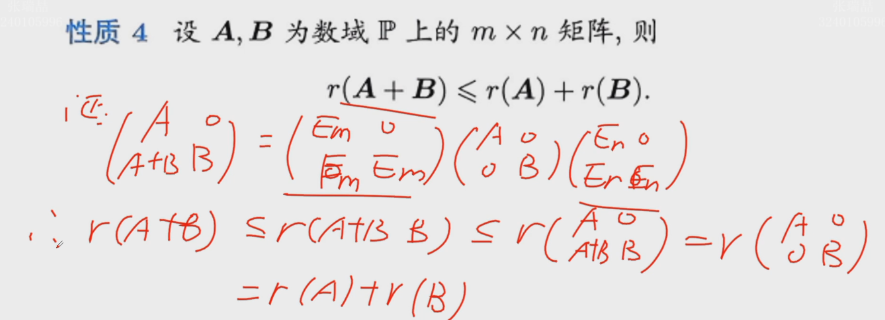 性质 4 设 A, B 为数域 ℙ 上的 m × n 矩阵, 则
r(A + B) ⩽ r(A) + r(B).
证:
(A 0; A+B B) = (Em 0; Em Em)(A 0; 0 B)(En 0; En En)
∴ r(A+B) ≤ r(A+B B) ≤ r(A 0; A+B B) = r(A 0; 0 B)
= r(A)+r(B)